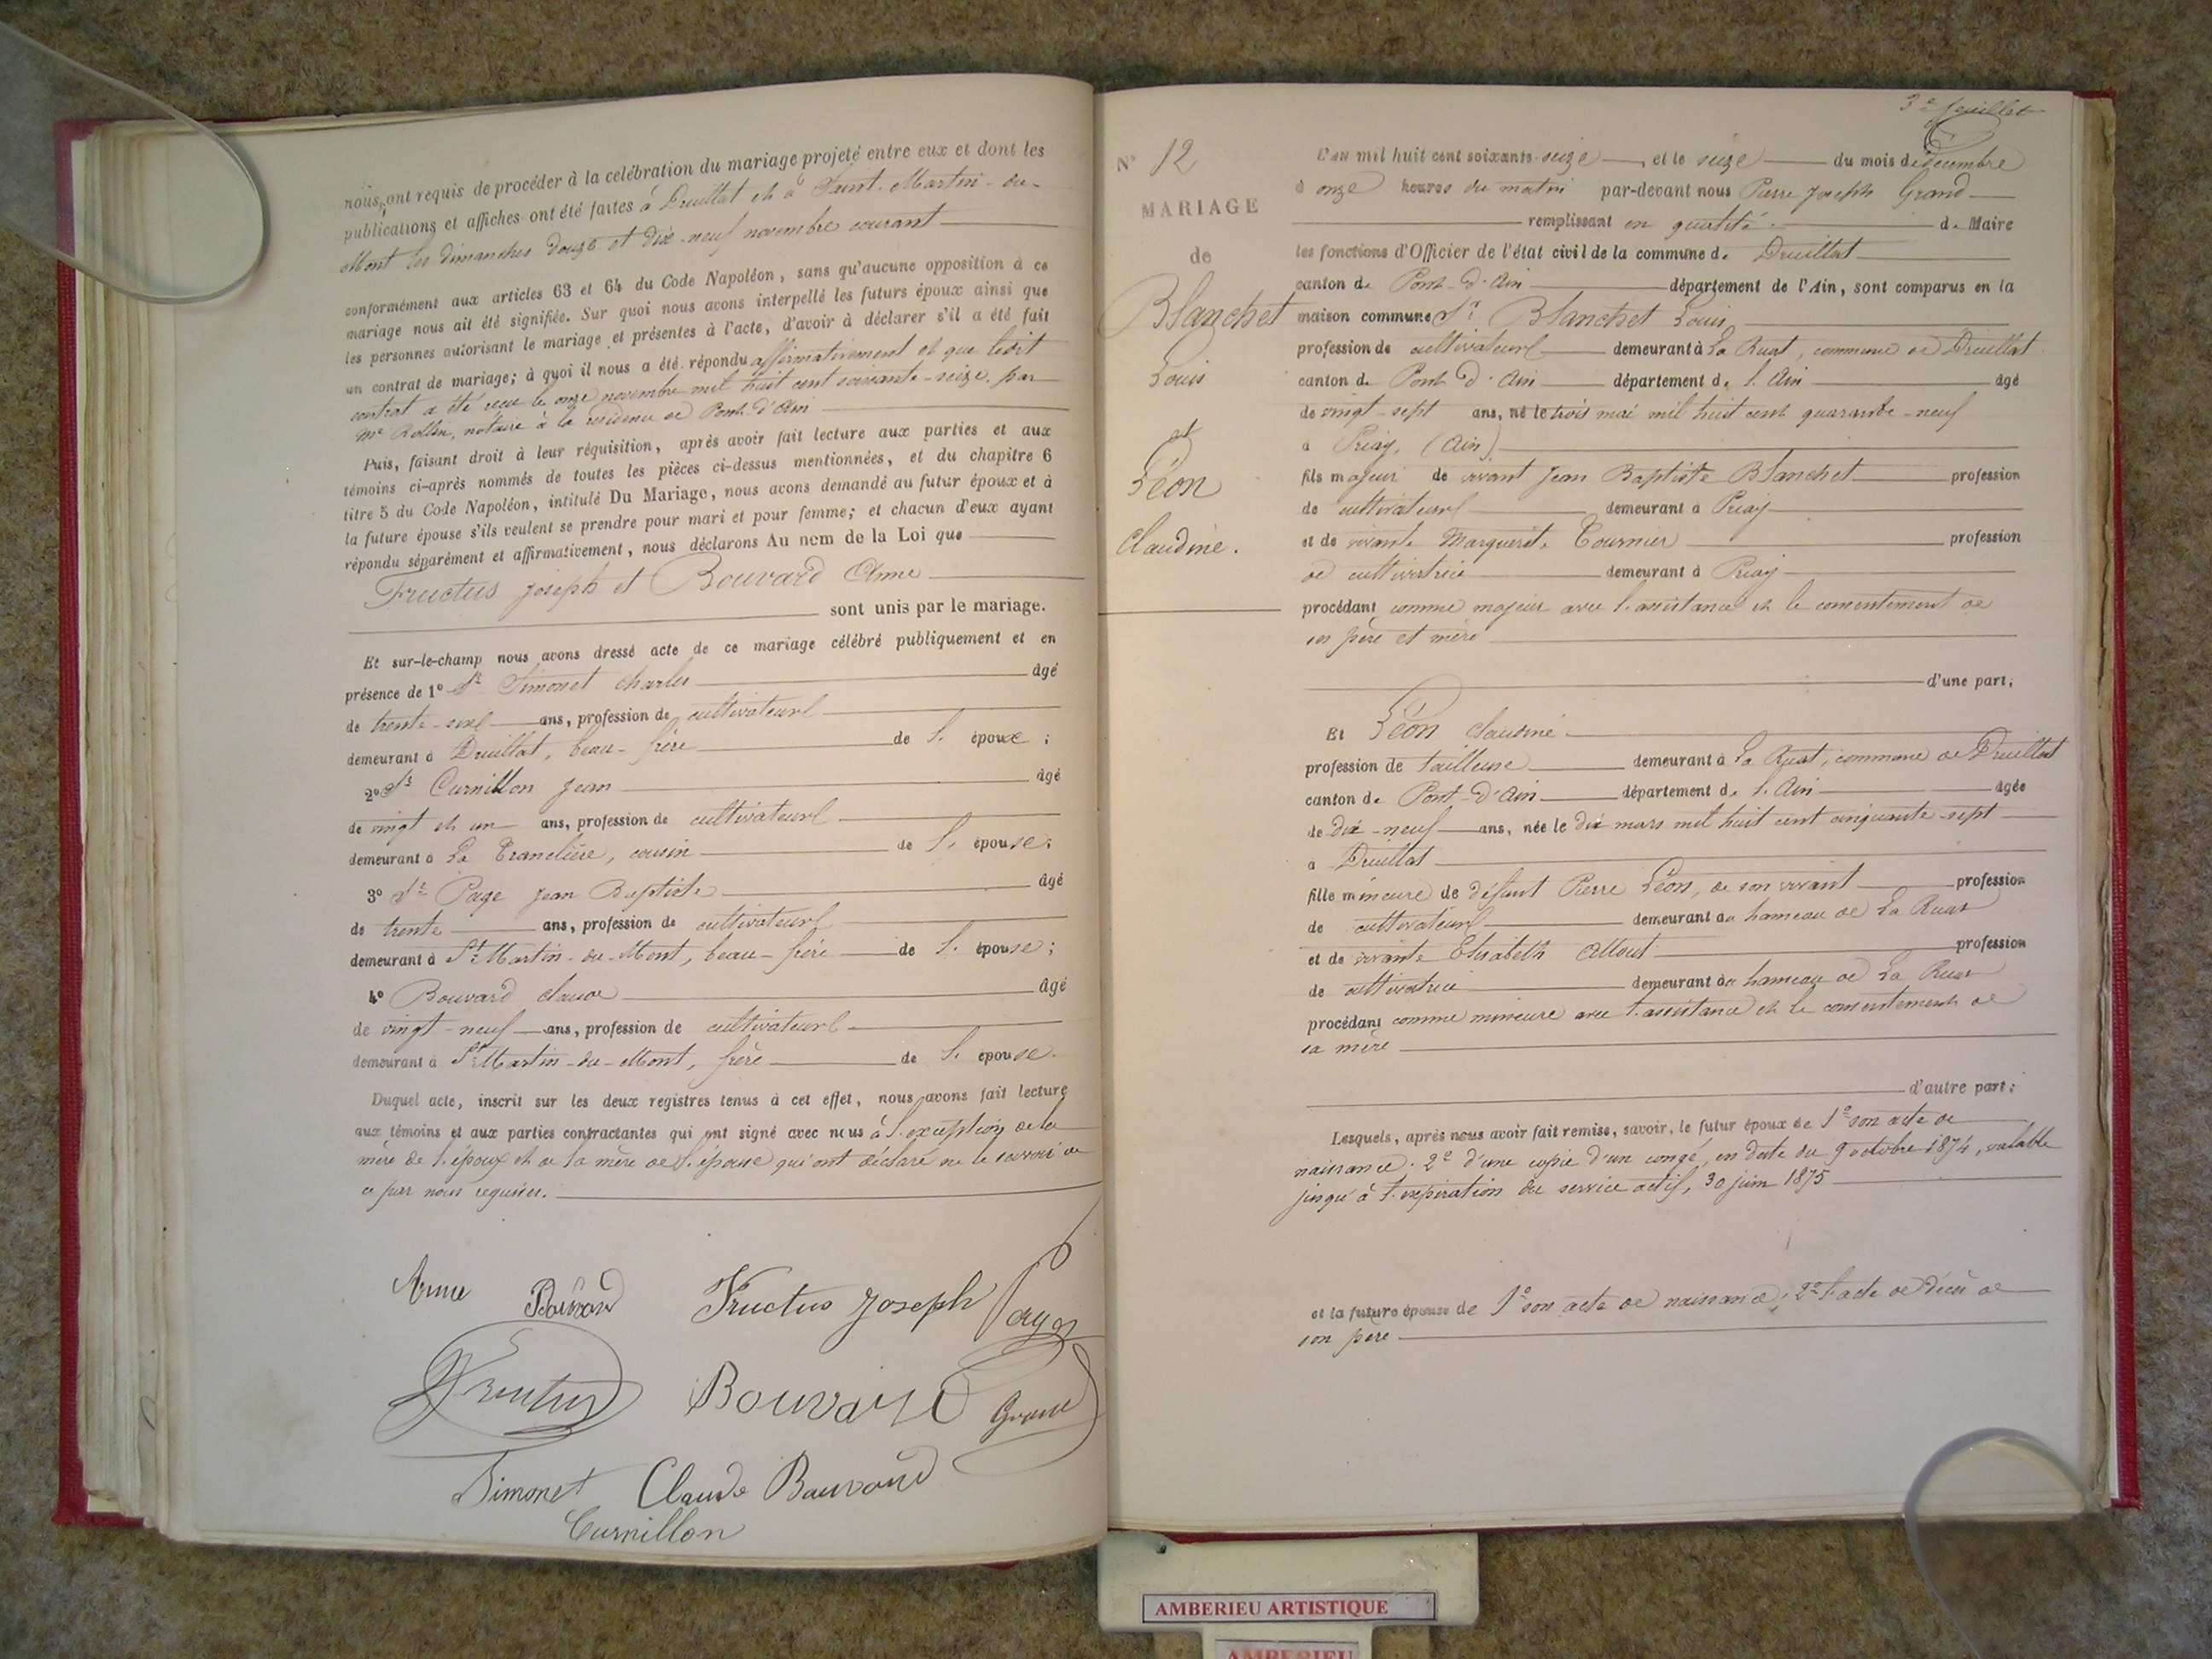 nous ont requis de procéder à la celébration du mariage projeté entre eux et dont les
publications et affiches ont été faites à Druillat et à Saint-Martin-du-
Mont les dimanches douze et dix-neuf novembre courant
conformément aux articles 63 et 64 du Code Napoléon, sans qu'aucune opposition à ce
mariage nous ait été signifiée. Sur quoi nous avons interpellé les futurs époux ainsi que
les personnes autorisant le mariage et présentes à l'acte, d'avoir à déclarer s'il a été fait
un contrat de mariage; à quoi il nous a été répondu affirmativement et que ledit
contrat a été reçu le onze novembre mil huit cent soixante-seize, par
Me Rollin, notaire à la résidence de Pont-d'Ain
Puis, faisant droit à leur réquisition, après avoir fait lecture aux parties et aux
témoins ci-après nommés de toutes les pièces ci-dessus mentionnées, et du chapitre 6
titre 5 du Code Napoléon, intitulé Du Mariage, nous avons demandé au futur époux et à
la future épouse s'ils veulent se prendre pour mari et pour femme; et chacun d'eux ayant
répondu séparément et affirmativement, nous déclarons Au nom de la Loi que
Fructus Joseph et Bouvard Anne
sont unis par le mariage.
Et sur-le-champ nous avons dressé acte de ce mariage célébré publiquement et en
présence de 1° Sr Simonet Charles âgé
de trente-  ans, profession de cultivateur
demeurant à Druillat, beau-frère de l' époux ;
2° Sr Curnillon Jean âgé
de vingt et un ans, profession de cultivateur
demeurant à La Tranclière, cousin de l' épouse;
3° Sr Page Jean Baptiste âgé
de trente ans, profession de cultivateur
demeurant à St Martin-du-Mont, beau-frère de l' épouse;
4° Bouvard Claude âgé
de vingt-neuf ans, profession de cultivateur
demeurant à St Martin-du-Mont, frère de l' épouse.
Duquel acte, inscrit sur les deux registres tenus à cet effet, nous avons fait lecture
aux témoins et aux parties contractantes qui ont signé avec nous à l'exception de la
mère de l'époux et de la mère de l'épouse qui ont déclaré ne le savoir de
ce par nous requises.
Anne Bouvard Fructus Joseph Page
Fructus Bouvard Grand
Simonet Claude Bouvard
Curnillon
3e feuillet
N° 12
MARIAGE
de
Blanchet
Louis
et
Léon
Claudine.
L'an mil huit cent soixante-seize et le seize du mois de décembre
à onze heures du matin par-devant nous Pierre Joseph Grand
remplissant en qualité de Maire
les fonctions d'Officier de l'état civil de la commune de Druillat
canton de Pont-d'Ain département de l'Ain, sont comparus en la
maison commune Sr Blanchet Louis
profession de cultivateur demeurant à La Ruat, commune de Druillat
canton de Pont-d'Ain département de l'Ain âgé
de vingt-sept ans, né le trois mai mil huit cent quarante-neuf
à Priay, (Ain)
fils majeur de vivant Jean Baptiste Blanchet profession
de cultivateur demeurant à Priay
et de vivante Marguerite Tournier profession
de cultivatrice demeurant à Priay
procédant comme majeur avec l'assistance et le consentement de
ses père et mère
d'une part;
Et Léon Claudine
profession de tailleuse demeurant à La Ruat, commune de Druillat
canton de Pont-d'Ain département de l'Ain âgée
de dix-neuf ans, née le dix mars mil huit cent cinquante-sept
à Druillat
fille mineure de défunt Pierre Léon, de son vivant profession
de cultivateur demeurant au hameau de La Ruat
et de vivante Elisabeth profession
de cultivatrice demeurant au hameau de La Ruat
procédant comme mineure avec l'assistance et le consentement de
sa mère
d'autre part;
Lesquels, après nous avoir fait remise, savoir, le futur époux de 1° son acte de
naissance. 2° d'une copie d'un congé, en date du 9 octobre 1874, valable
jusqu'à l'expiration du service actif, 30 juin 1875
et la future épouse de 1° son acte de naissance; 2° l'acte de décès de
son père
AMBERIEU ARTISTIQUE
AMBERIEU